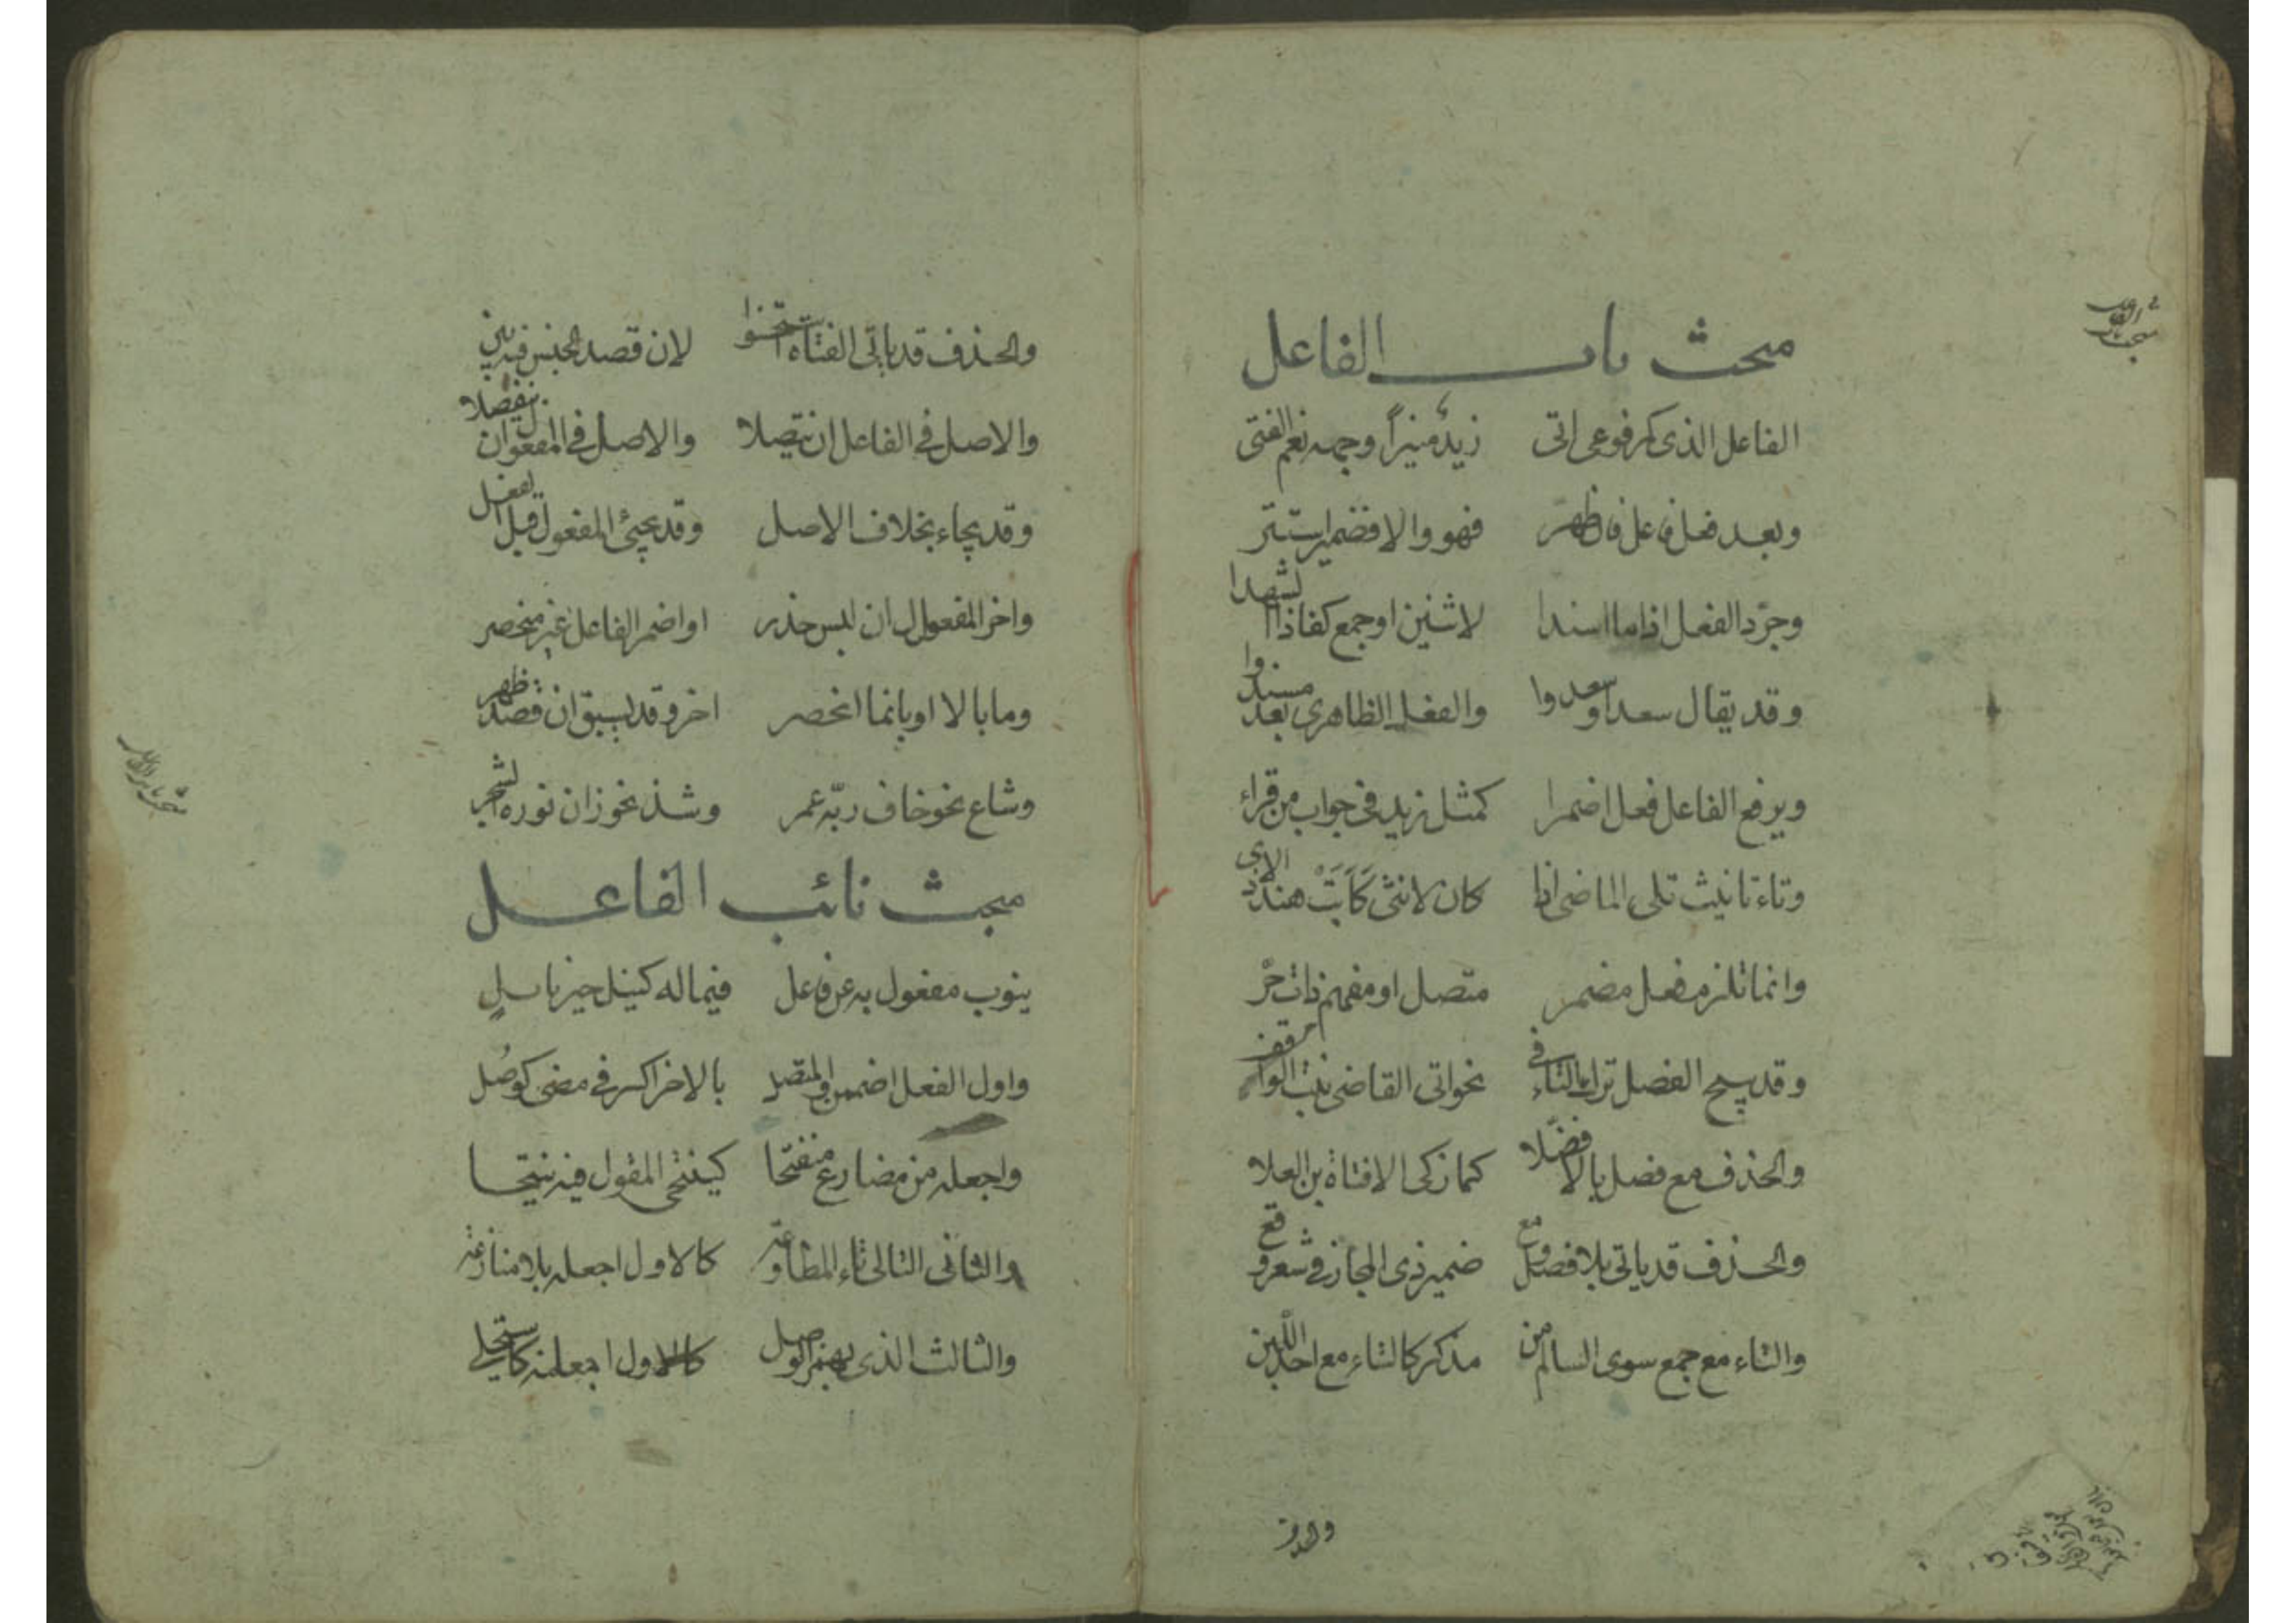 مبحث باب الفاعل
الفاعل الذی کمرفوعی اتی زیدٌ منیراً وجهه نعم الفتی
وبعد فعل فاعل فان ظهر فهو والا فضمیر استتر
وجرّد الفعل اذا ما اسندا لاثنین او جمع کفاذ الشهدا
وقد یقال سعدا وسعدوا والفعل للظاهری بعد مسند
ویرفع الفاعل فعل اضمرا کمثل زید فی جواب من قراء
وتاء تانیث تلی الماضی اذا کان لانثی کَاَبَتْ هند الاذی
وانما تلزم فعل مضمر متصل او مفهم ذات حر
وقد یبیح الفصل ترک التاء فی نحو اتی القاضی بنت الواقف
والحذف مع فصل بالا فضّلا کما زکی الا فتاة بن العلا
والحذف قد یاتی بلا فصل ومع ضمیر ذی المجاز فی شعر وقع
والتاء مع جمع سوی السالم من مذکر کالتاء مع احد اللّبن
والحذف
والحذف قد یاتی الفتاة استحسنوا لان قصد الجنس فیه بین
والاصل فی الفاعل ان یتصلا والاصل فی المفعول ان ینفصلا
وقد یجاء بخلاف الاصل وقد یجیٔ المفعول قبل الفعل
واخر المفعول ان لبس حذر او اضمر الفاعل غیر منحصر
وما بالا او بانما انحصر اخر وقد یسبق ان قصد ظهر
وشاع نحو خاف ربّه عمر وشذ نحو زان نوره الشجر
مبحث نائب الفاعل
ینوب مفعول به عن فاعل فیما له کنیل خیر نایل
واول الفعل اضممن والمتصل بالاخر اکسر فی مضی کوُصل
واجعله من مضارع منفتحا کینتحی المقول فیه ینتحا
والثانی التالی تاء المطاوعه کالاول اجعله بلا منازعه
والثالث الذی بهمز الوصل کالاول اجعلنه کاستحلی